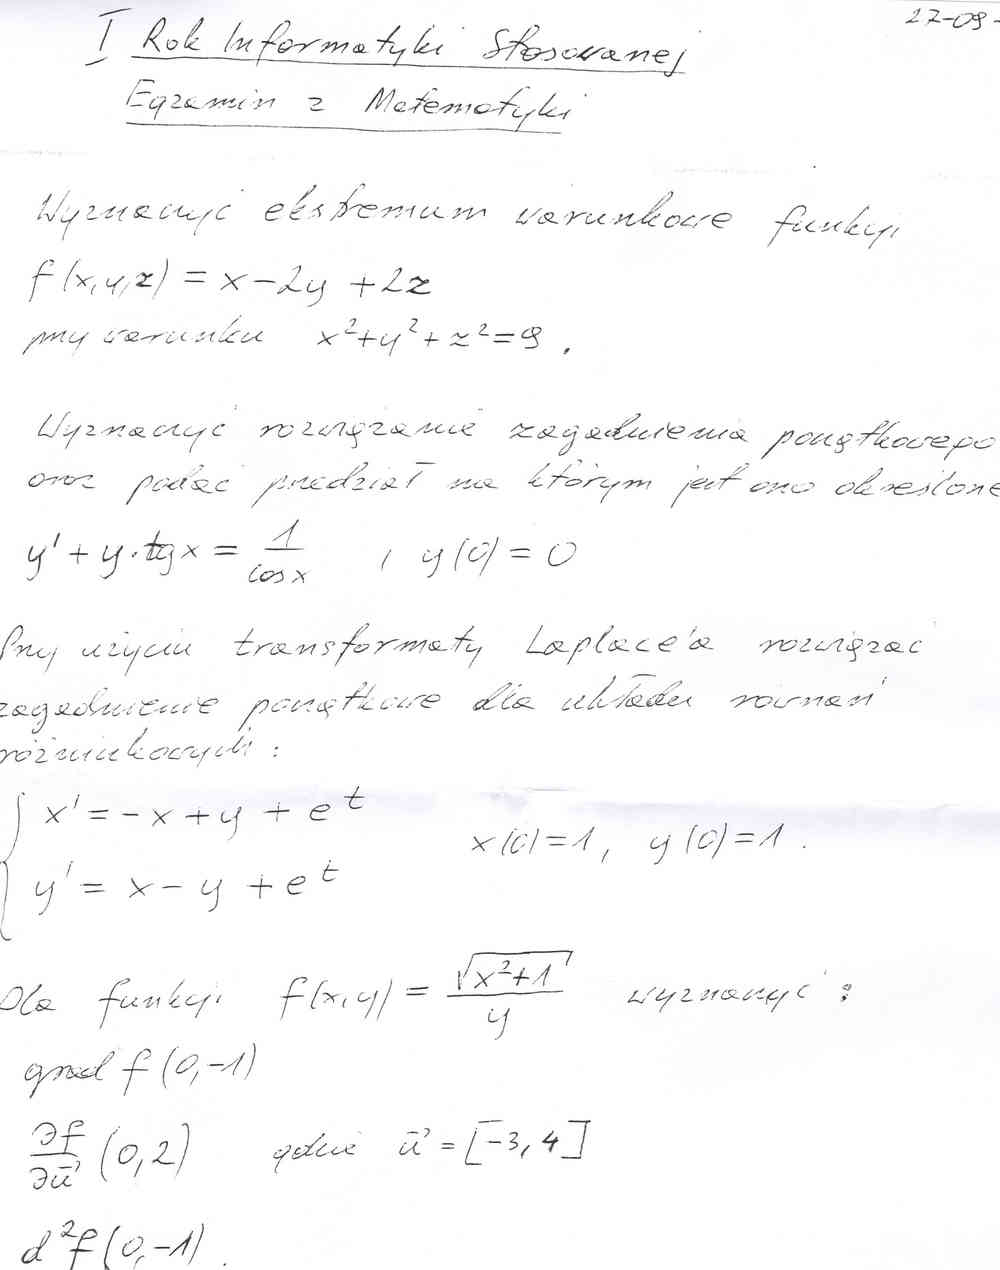 27-09-
I Rok Informatyki Stosowanej
Egzamin z Matematyki
Wyznaczyć ekstremum warunkowe funkcji
f(x,y,z) = x-2y+2z
przy warunku x²+y²+z²=9.
Wyznaczyć rozwiązanie zagadnienia początkowego
oraz podać przedział na którym jest ono określone
y' + y·tgx = 1/cosx , y(0) = 0
Przy użyciu transformaty Laplace'a rozwiązać
zagadnienie początkowe dla układu równań
różniczkowych:
x' = -x+y+e^t
x(0)=1, y(0)=1.
y' = x-y+e^t
Dla funkcji f(x,y) = √(x²+1)/y wyznaczyć:
grad f(0,-1)
∂f/∂u⃗ (0,2) gdzie u⃗ = [-3,4]
d²f(0,-1).